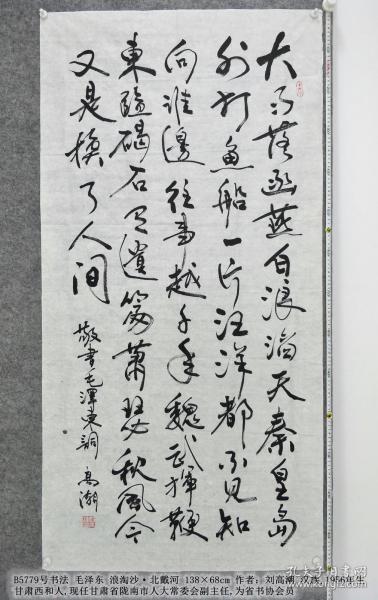 大雨落幽燕白浪滔天秦皇島
外打魚船一片汪洋都不见知
向谁邊往事越千年魏武揮鞭
東臨碣石有遺篇蕭瑟秋風今
又是换了人间
敬書毛澤東詞 高潮
B5779号书法 毛泽东 浪淘沙·北戴河 138×68cm 作者：刘高潮,汉族,1956年生,
甘肃西和人,现任甘肃省陇南市人大常委会副主任,为省书协会员